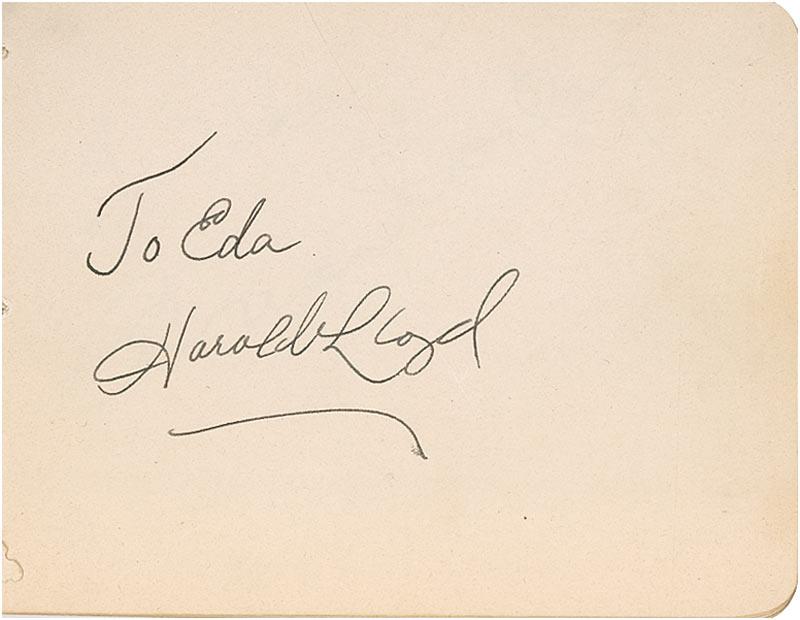 To Eda
Harold Lloyd